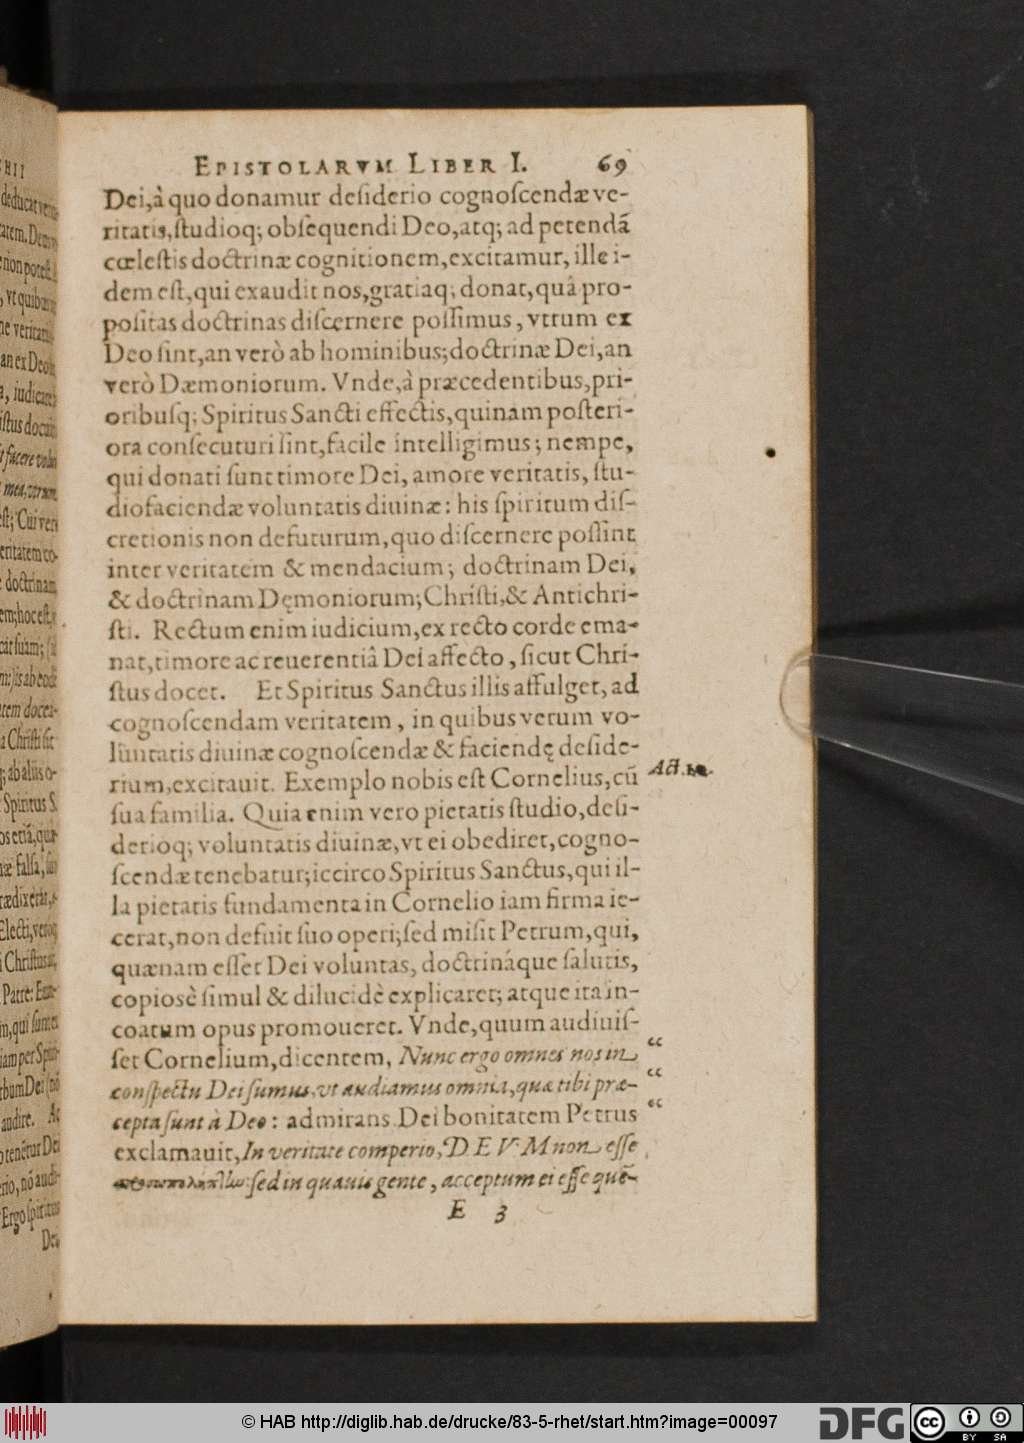 EPISTOLARVM LIBER I. 69
Dei,à quo donamur deſiderio cognoſcendæ ve-
ritatis,ſtudioq; obſequendi Deo,atq; ad petendã
cœleſtis doctrinæ cognitionem,excitamur, ille i-
dem eſt,qui exaudit nos,gratiaq; donat,quâ pro-
poſitas doctrinas diſcernere poſſimus, vtrum ex
Deo ſint,an verò ab hominibus;doctrinæ Dei,an
verò Dæmoniorum. Vnde,à præcedentibus,pri-
oribuſq; Spiritus Sancti effectis,quinam poſteri-
ora conſecuturi ſint,facile intelligimus; nempe,
qui donati ſunt timore Dei, amore veritatis, ſtu-
dio faciendæ voluntatis diuinæ: his ſpiritum diſ-
cretionis non defuturum,quo diſcernere poſſint
inter veritatem & mendacium; doctrinam Dei,
& doctrinam Dęmoniorum;Chriſti,& Antichri-
ſti. Rectum enim iudicium,ex recto corde ema-
nat,timore ac reuerentiâ Dei affecto, ſicut Chri-
ſtus docet. Et Spiritus Sanctus illis affulget, ad
cognoſcendam veritatem, in quibus verum vo-
luntatis diuinæ cognoſcendæ & faciendę deſide-
rium,excitauit. Exemplo nobis eſt Cornelius,cũ
ſua familia. Quia enim vero pietatis ſtudio,deſi-
derioq; voluntatis diuinæ,vt ei obediret,cogno-
ſcendæ tenebatur;iccirco Spiritus Sanctus,qui il-
la pietatis fundamenta in Cornelio iam firma ie-
cerat,non defuit ſuo operi;ſed miſit Petrum,qui,
quænam eſſet Dei voluntas, doctrináque ſalutis,
copiosè ſimul & dilucidè explicaret; atque ita in-
coatum opus promoueret. Vnde,quum audiuiſ-
ſet Cornelium,dicentem, Nunc ergo omnes nos in
conſpectu Dei ſumus,vt audiamus omnia,quæ tibi præ-
cepta ſunt à Deo: admirans Dei bonitatem Petrus
exclamauit,In veritate comperio, DEVM non eſſe
ſed in quauis gente, acceptum ei eſſe quē-
E 3
Act.10.
“
“
“
© HAB http://diglib.hab.de/drucke/83-5-rhet/start.htm?image=00097
DFG
cc
BY SA